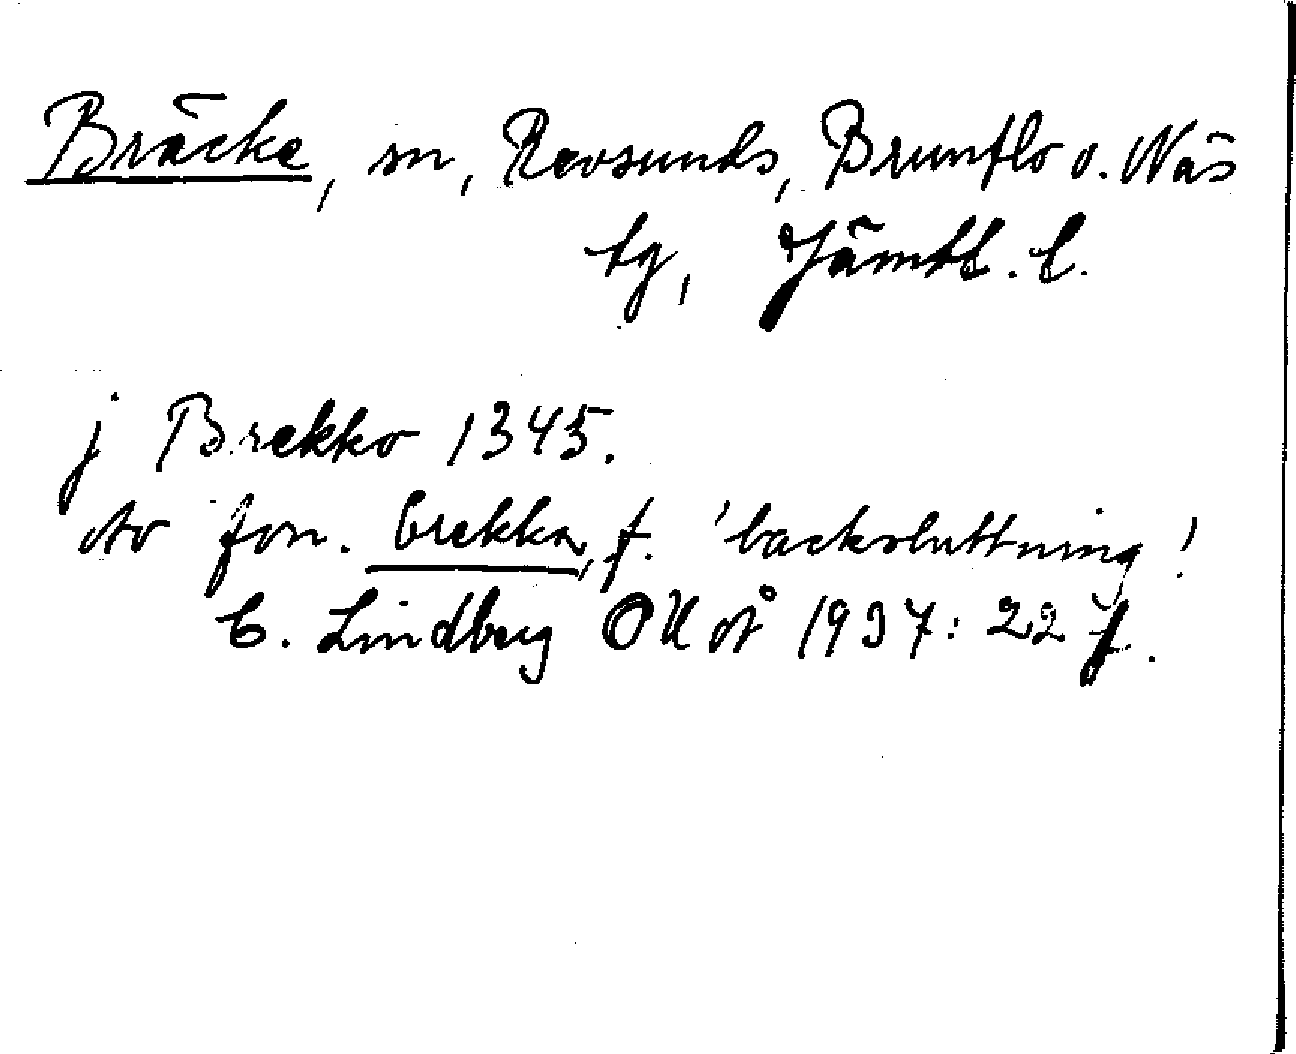 Bräcke, sn, Revsunds, Brunflo o. Näs
tg, Jämtl. l.
j Brekko 1345.
Av fvn. brekka, f. 'backsluttning'.
C. Lindberg OUoÅ 1937: 22 f.